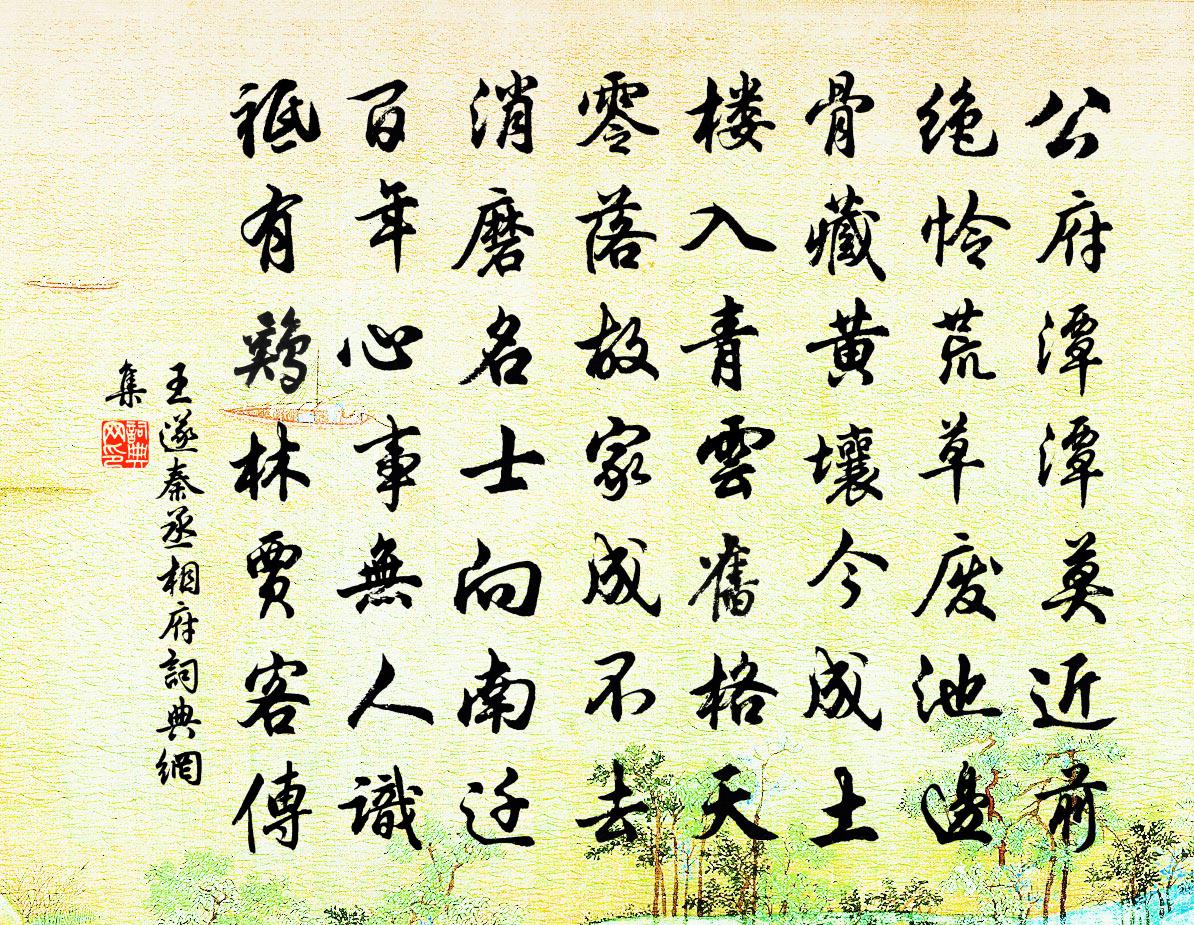 公府潭潭莫近前
绝怜荒草废池邊
骨藏黄壤今成土
楼入青雲舊格天
零落故家成不去
消磨名士向南迁
百年心事無人識
祗有鷄林賈客傳
王遂秦丞相府詞典網
集
詞典
网印